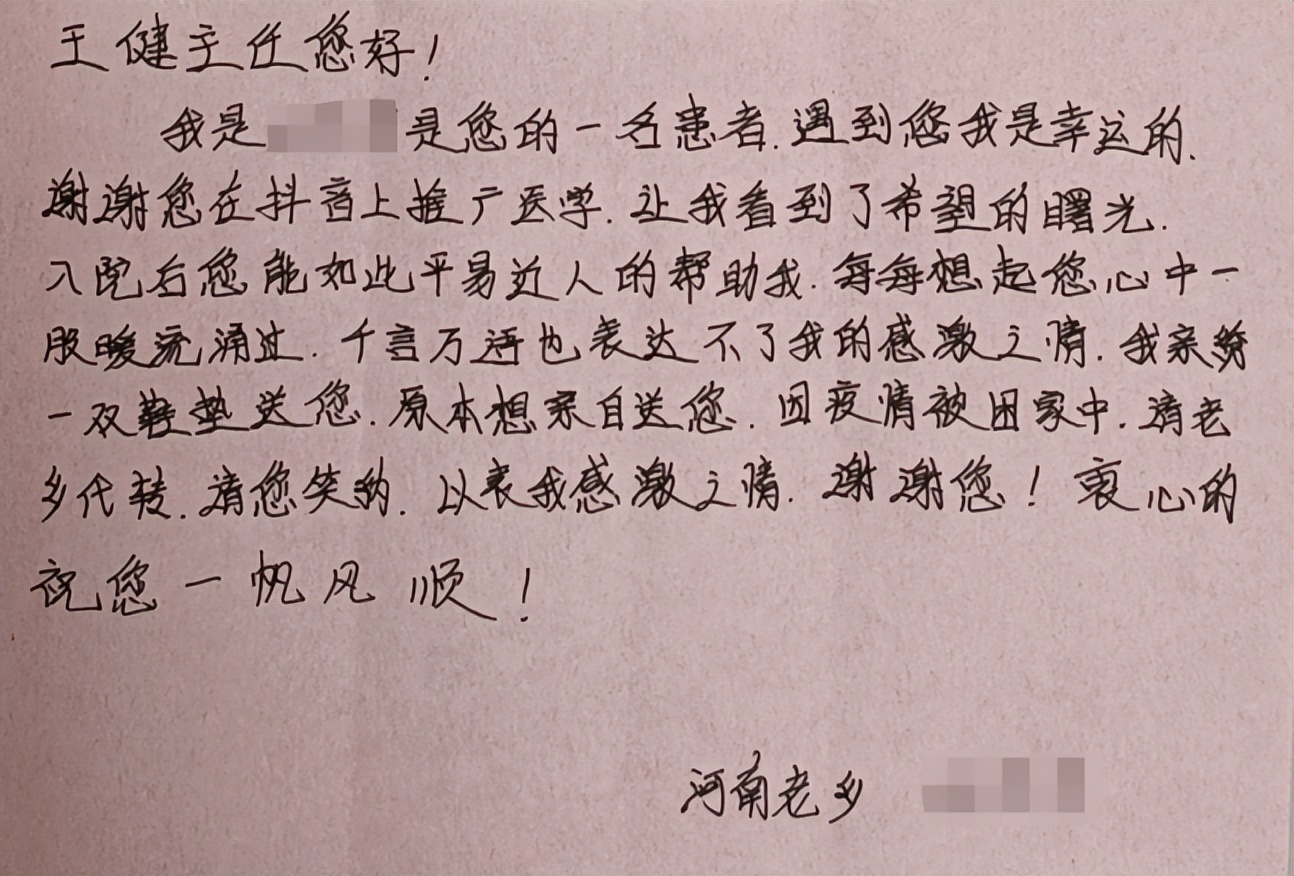 王健主任您好!
我是 是您的一名患者.遇到您我是幸运的.
谢谢您在抖音上推广医学.让我看到了希望的曙光.
入院后您能如此平易近人的帮助我.每每想起您心中一
股暖流涌过.千言万语也表达不了我的感激之情.我亲纺
一双鞋垫送您.原本想亲自送您.因疫情被困家中.请老
乡代转.请您笑纳.以表我感激之情.谢谢您!衷心的
祝您一帆风顺!
河南老乡